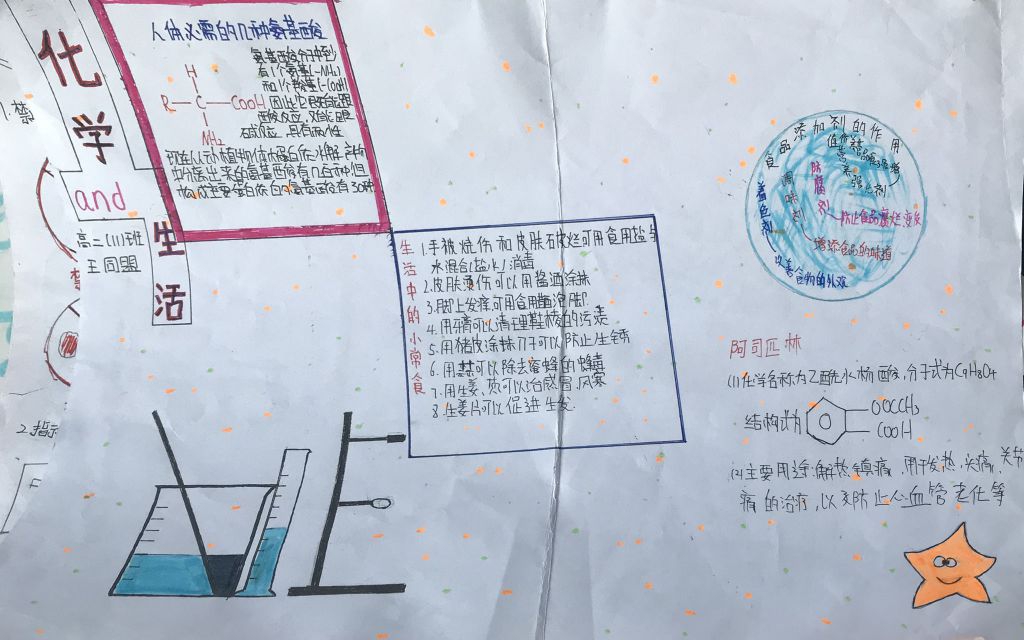 化学
and
生活
高二(11)班
王同盟
1.禁
2.指示
人体必需的几种氨基酸
氨基酸分子中到
有1个氨基(-NH₂)
和1个羧基(-COOH)
因此它既能跟
酸反应,又能跟
碱反应,具有两性
H
R—C—COOH
NH₂
现在从动植物体内蛋白质水解产物
中分离出来的氨基酸有几百种,但
构成主要蛋白质的氨基酸有30种
生活中的小常食
1.手被烧伤和皮肤石皮烂可用食用盐与
水混合(盐水)消毒
2.皮肤烫伤可以用酱酒涂抹
3.脚上发痒可用食用醋泡脚
4.用牙膏可以清理鞋棱的污渍
5.用猪皮涂抹刀子可以防止生锈
6.用碱可以除去蜜蜂的蜂毒
7.用生姜、可以治感冒、风寒
8.生姜片可以促进生发.
食品添加剂的作用
着色剂
改善食物的外观
调味剂
增添食品的味道
防腐剂
防止食品腐烂、变质
营养强化剂
阿司匹林
(1)化学名称为乙酰水杨酸,分子式为C₉H₈O₄
结构式为
OOCCH₃
COOH
(2)主要用途:解热镇痛,用于发热,头痛,关节
痛的治疗,以及防止心血管老化等